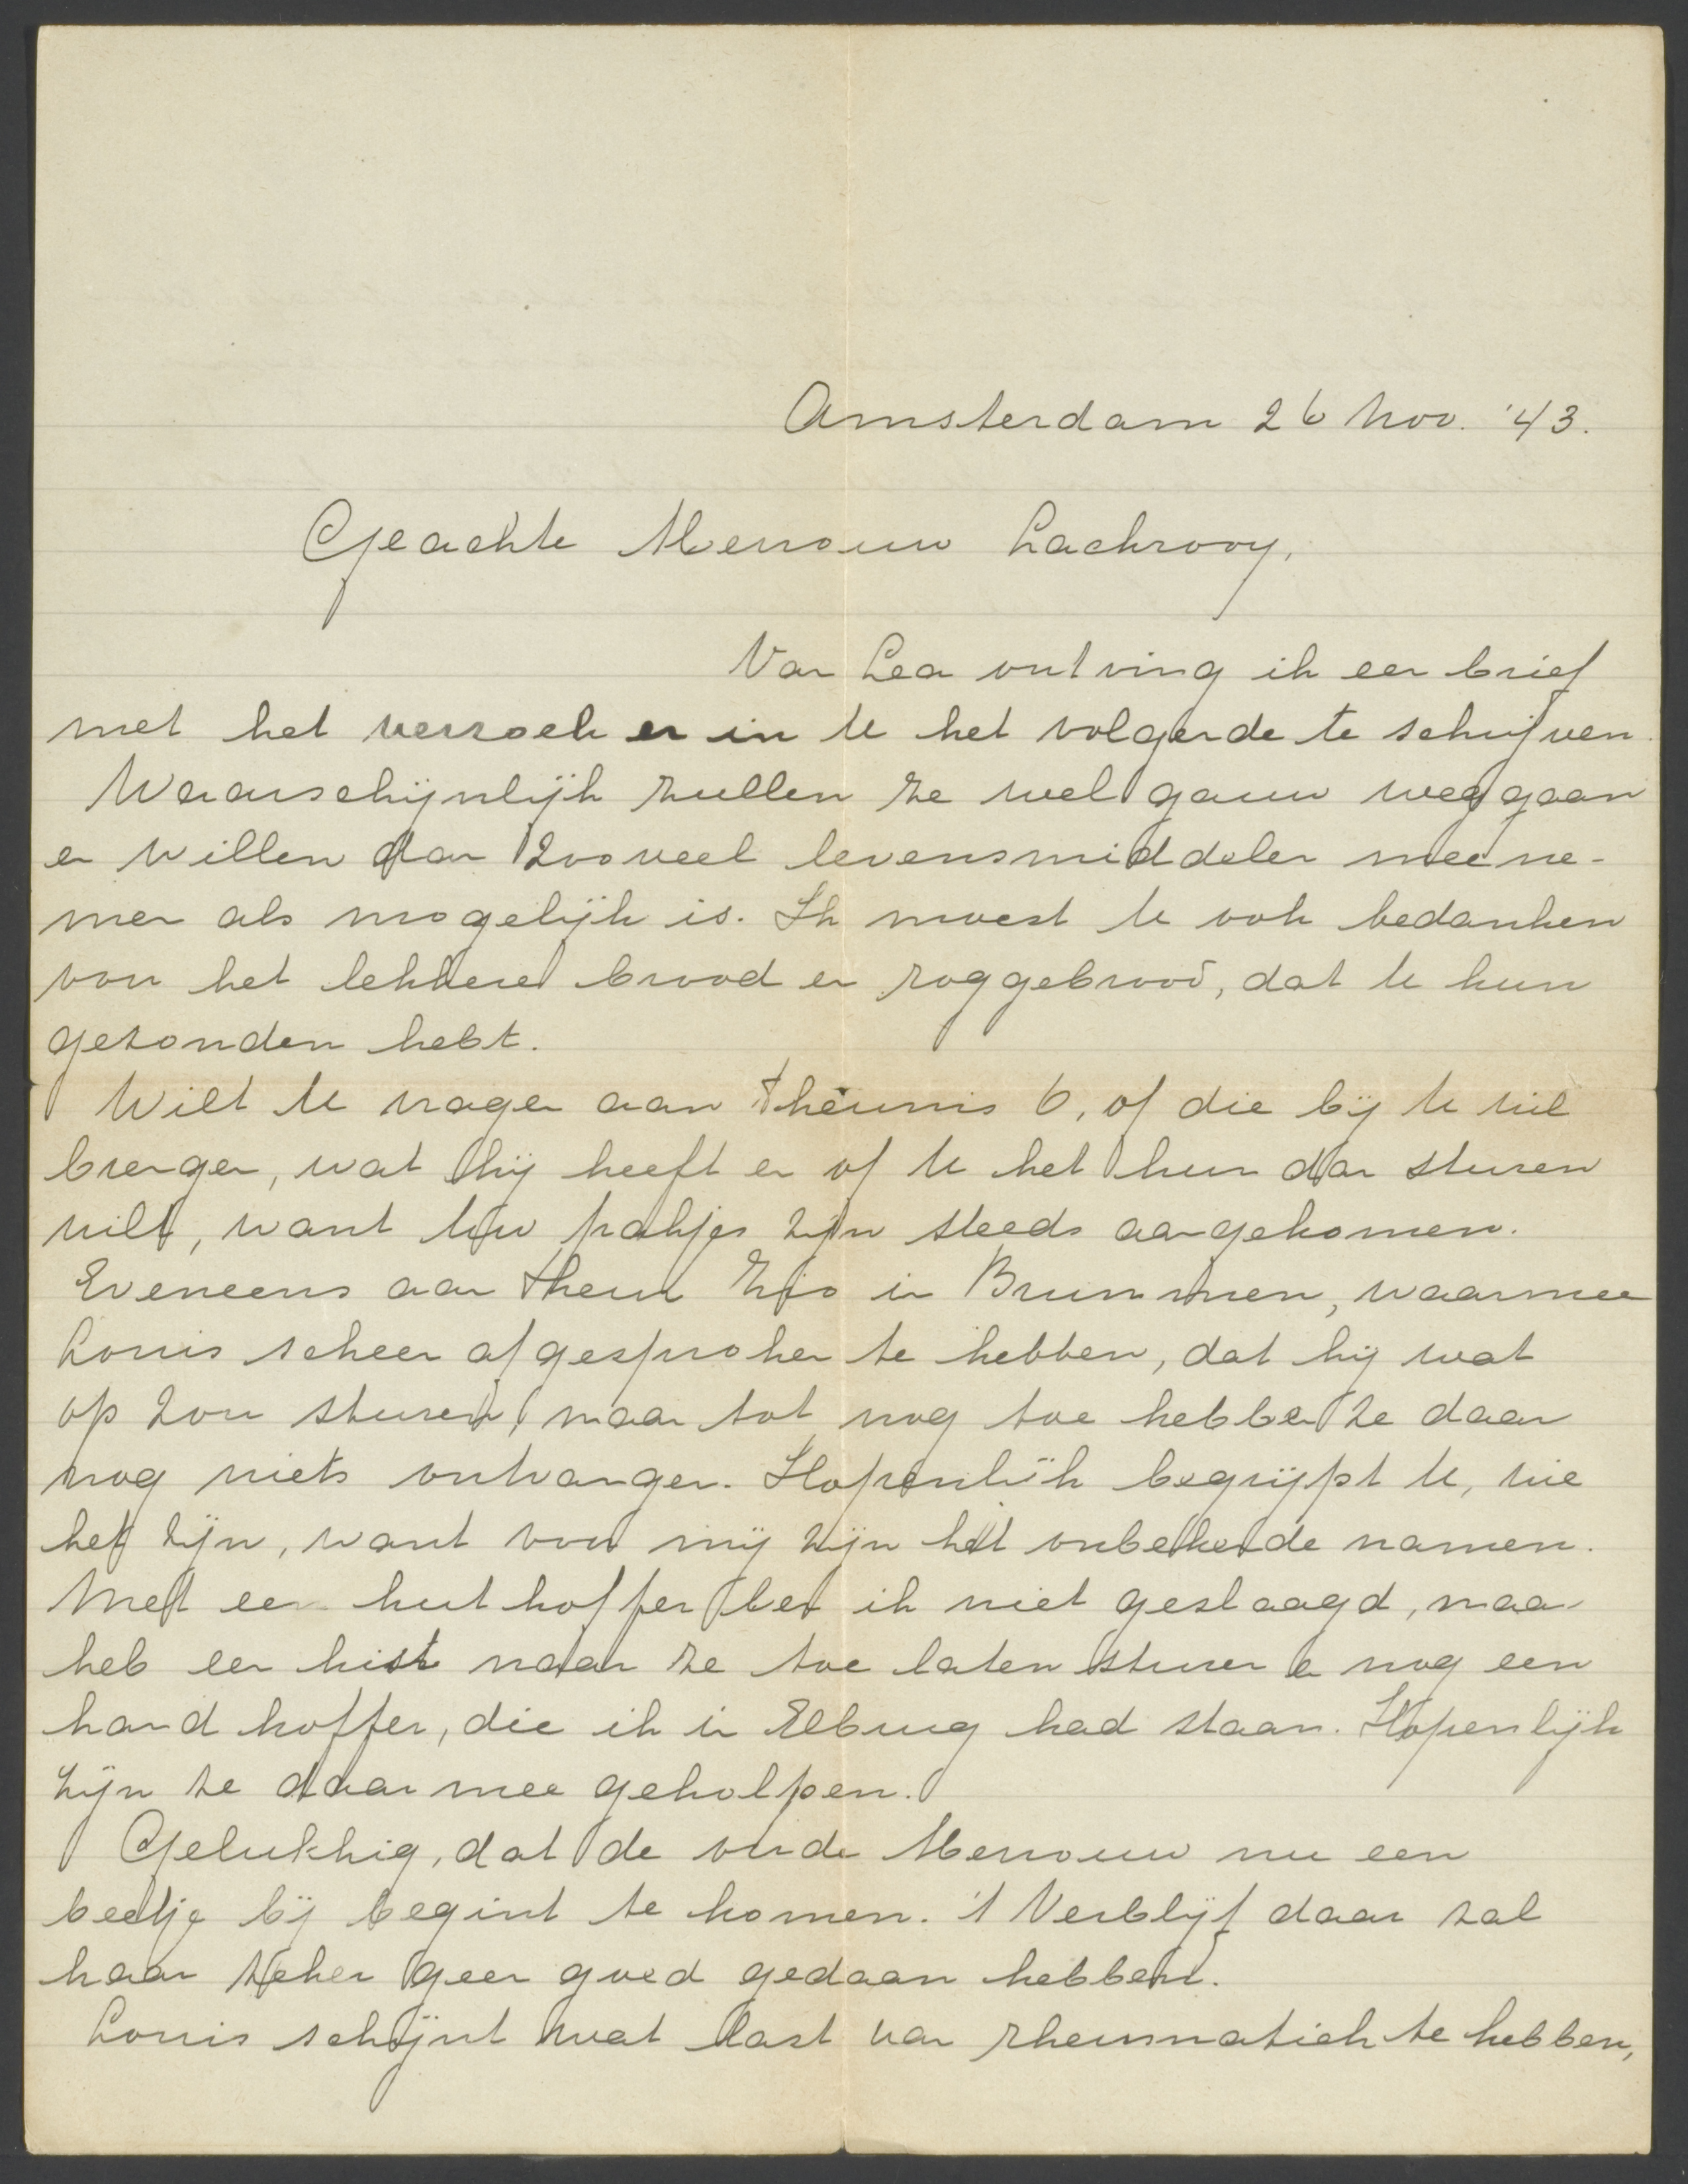 Amsterdam 26 Nov. '43.
Geachte Mevrouw Lachrooy,
Van Lea ontving ik een brief
met het verzoek er in U het volgende te schrijven.
Waarschijnlijk zullen ze wel gauw weggaan
en willen dan zooveel levensmiddelen meene-
men als mogelijk is. Ik moest U ook bedanken
voor het lekkere brood en roggebrood, dat U hun
gezonden hebt.
Wilt U vragen aan Theunis 6, of die bij U wil
brengen, wat hij heeft en of U het hun dan sturen
wilt, want Uw pakjes zijn steeds aangekomen.
Eveneens aan Theun in Brummen, waarmee
Louis scheen afgesproken te hebben, dat hij wat
op zou sturen, maar tot nog toe hebben ze daar
nog niets ontvangen. Hopenlijk begrijpt U, wie
het zijn, want voor mij zijn het onbekende namen.
Met een hutkoffer ben ik niet geslaagd, maar
heb een kist naar ze toe laten sturen en nog een
handkoffer, die ik in Elburg had staan. Hopenlijk
zijn ze daarmee geholpen.
Gelukkig, dat de oude Mevrouw nu een
beetje bij begint te komen. 't Verblijf daar zal
haar zeker geen goed gedaan hebben.
Louis schijnt wat last van rheumatiek te hebben,